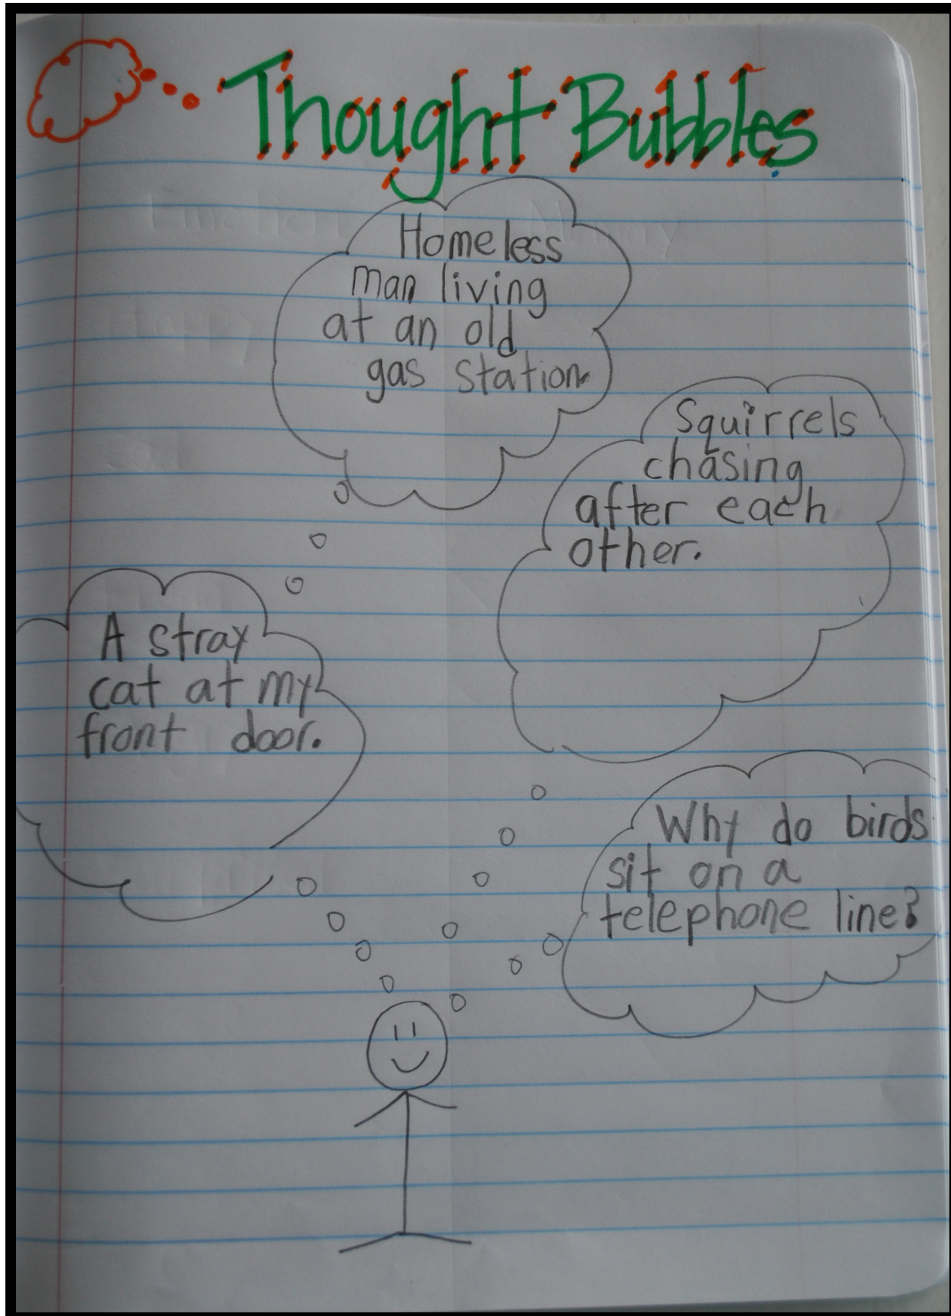 Thought Bubbles
Homeless
man living
at an old
gas station.
Squirrels
chasing
after each
other.
A stray
cat at my
front door.
Why do birds
sit on a
telephone line?